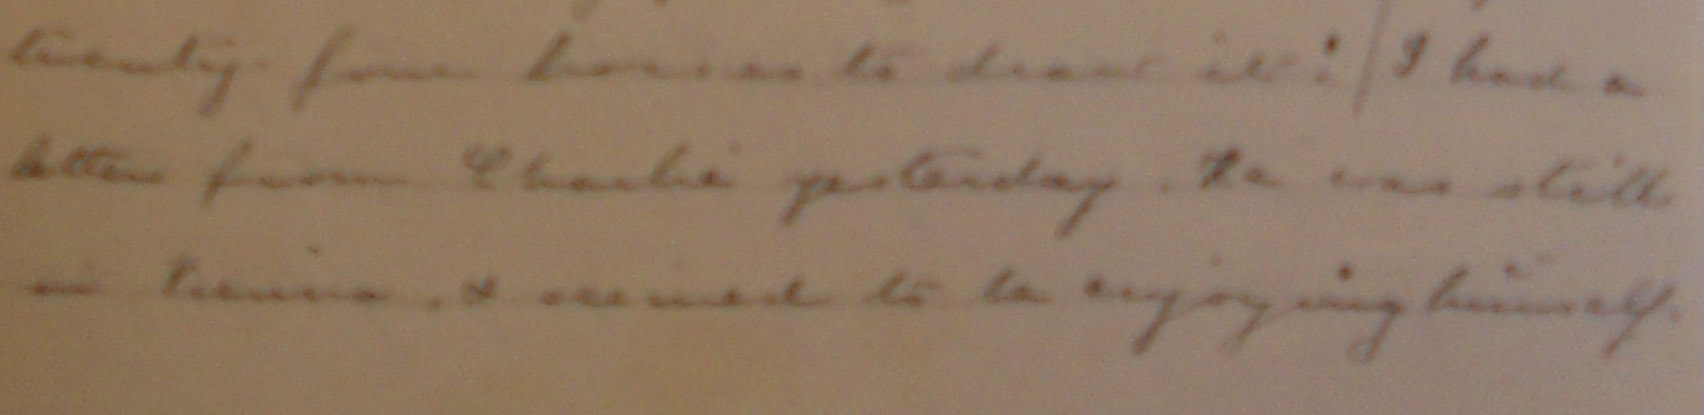 twenty-four horses to draw it! / I had a
letter from Charlie yesterday. He was still
in Vienna, & seemed to be enjoying himself.